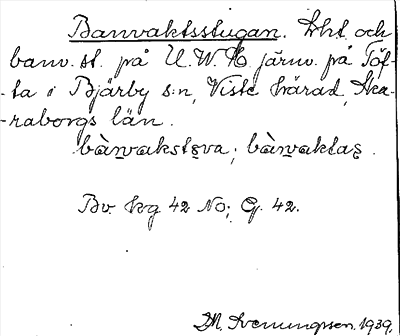 Banvaktsstugan. Lht. och
banv.st. på U.W.H. järnv. på Töf-
-ta i Bjärby s:n, Viste härad, Ska-
-raborgs län.
bàn̠vakstɐva; bàn̠vaktas̠.
Bv. kg 42 No; G. 42.
M. Svenungsson. 1939.